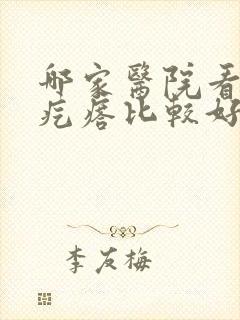 哪家醫院看
疙瘩比較好
李友梅